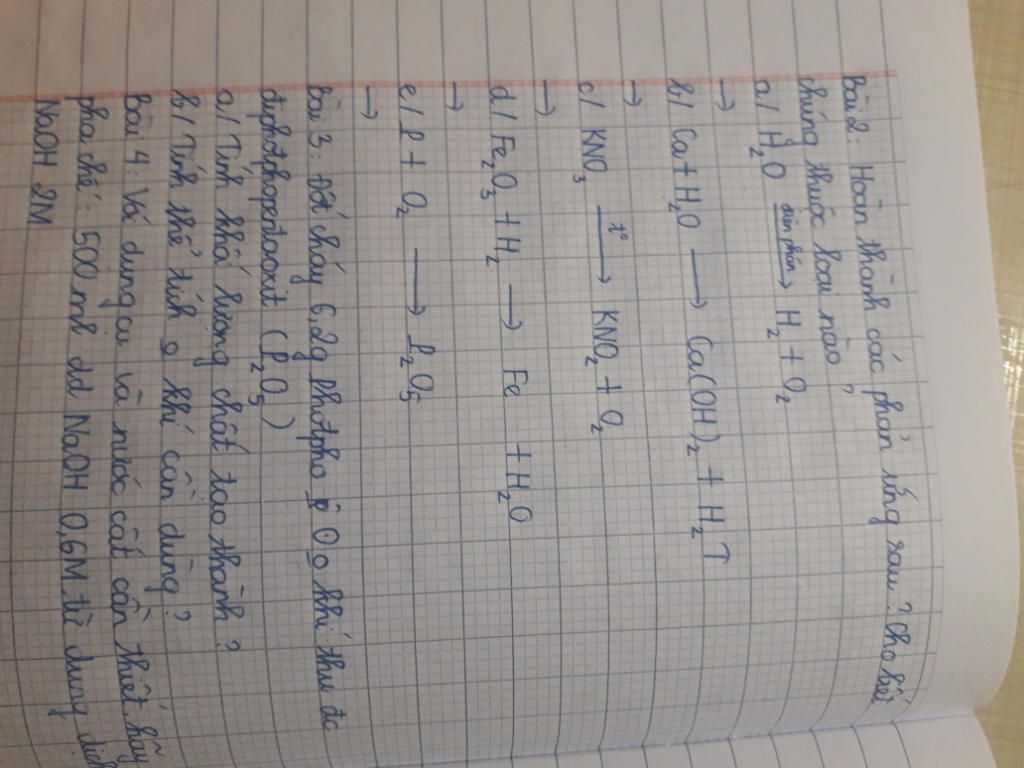 Bài 2: Hoàn thành các phản ứng sau? Cho biết
chúng thuộc loại nào?
a/ H₂O điện phân→ H₂ + O₂
→
b/ Ca + H₂O → Ca(OH)₂ + H₂↑
→
c/ KNO₃ t°→ KNO₂ + O₂
→
d/ Fe₂O₃ + H₂ → Fe + H₂O
→
e/ P + O₂ → P₂O₅
→
Bài 3: Đốt cháy 6,2g photpho khí thu đc
điphotphopentaoxit (P₂O₅)
a/ Tính khối lượng chất tạo thành?
b/ Tính thể tích khí cần dùng?
Bài 4: Với dụng cụ và nước cất cần thiết hãy
pha chế: 500ml dd NaOH 0,6M từ dung dịch
NaOH 2M